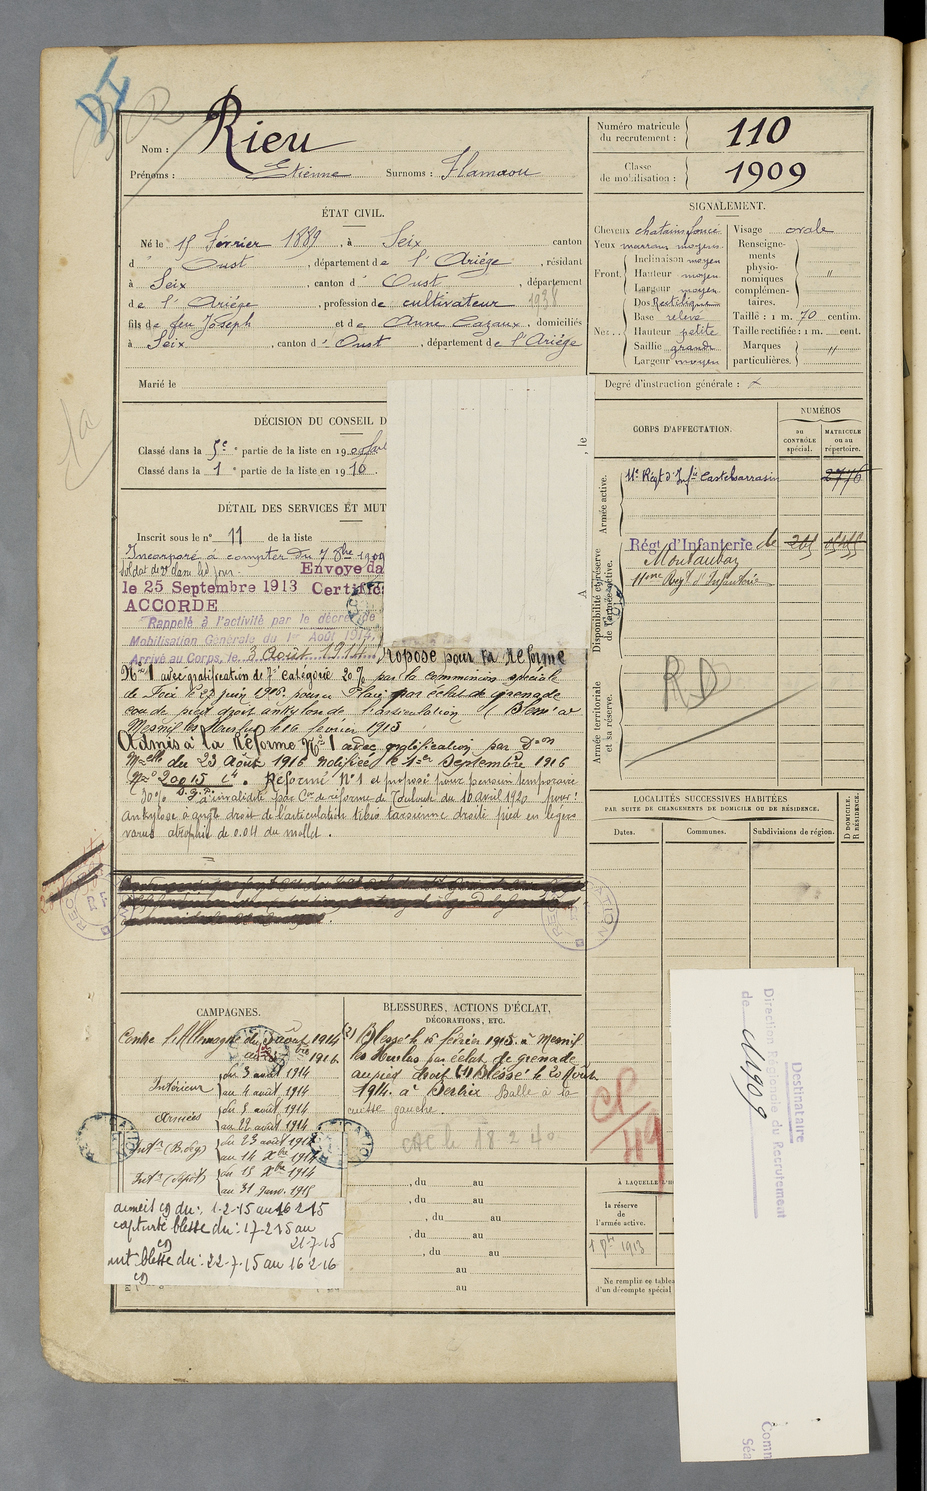 DI
Nom : Rieu
Prénoms : Etienne Surnoms : Hamaou
Numéro matricule du recrutement : 110
Classe de mobilisation : 1909
ÉTAT CIVIL.
Né le 15 Février 1889, à Seix canton
d'Oust, département de l'Ariége, résidant
à Seix, canton d'Oust, département
de l'Ariége, profession de cultivateur 1038
fils de feu Joseph et de Anne Cazaux, domiciliés
à Seix, canton d'Oust, département de l'Ariége
Marié le
SIGNALEMENT.
Cheveux chatains foncé
Yeux marrons moyens
Front. Inclinaison moyen
Hauteur moyen
Largeur moyen
Nez. Dos Rectiligne
Base relevé
Hauteur petite
Saillie grande
Largeur moyen
Visage ovale
Renseignements physionomiques complémentaires. "
Taille : 1 m. 70 centim.
Taille rectifiée : 1 m. cent.
Marques particulières. "
Degré d'instruction générale : x
DÉCISION DU CONSEIL D
Classé dans la 5e partie de la liste en 19
Classé dans la 1 partie de la liste en 1910.
, le
DÉTAIL DES SERVICES ET MUT
Inscrit sous le n° 11 de la liste
Incorporé à compter du 7 8bre 1909
Envoyé da
le 25 Septembre 1913 Certifica
ACCORDE
Rappelé à l'activité par le décret de
Mobilisation Générale du 1er Août 1914,
Arrivé au Corps, le 3 Août 1914. Proposé pour la Réforme
N° 1 avec gratification de 7e catégorie 20% par la commission spéciale
de Foix le 27 juin 1916. pour Plaie par éclat de grenade
cou de pied droit ankylose de l'articulation (Blessé à
Mesnil les Hurlus le 16 février 1915
Admis à la Réforme N° 1 avec gratification par Don
Melle du 23 Août 1916 notifiée le 1er Septembre 1916
N° 20015 Réformé N° 1 et proposé pour pension temporaire
30% d'invalidité par Con de réforme de Toulouse du 10 Avril 1920 pour :
Ankylose à angle droit de l'articulation tibio tarsienne droite pied en léger
varus atrophie de 0.04 du mollet.
CORPS D'AFFECTATION.
NUMÉROS
au CONTRÔLE spécial.
MATRICULE ou au répertoire.
Armée active.
11e Régt d'Infie Castelsarrasin 2776
Disponibilité et réserve de l'armée active.
Régt d'Infanterie de Montauban
11me Régt d'Infanterie
Armée territoriale et sa réserve.
RD
LOCALITÉS SUCCESSIVES HABITÉES
PAR SUITE DE CHANGEMENTS DE DOMICILE OU DE RÉSIDENCE.
Dates.
Communes.
Subdivisions de région.
D DOMICILE. R RÉSIDENCE.
CAMPAGNES.
Contre l'Allemagne du 3 août 1914
au 1916
Intérieur du 3 août 1914
au 4 août 1914
Armées du 5 août 1914
au 22 août 1914
Intr (B. Seg) du 23 août 1914
au 14 Xbre 1914
Intr (Dépôt) du 15 Xbre 1914
au 31 janv. 1915
aumées cg du : 1-2-15 au 16 2 15
capturé blessé du : 17-2-15 au
21-7-15
int blessé du : 22-7-15 au 16 2-16
BLESSURES, ACTIONS D'ÉCLAT,
DÉCORATIONS, ETC.
(2) Blessé le 16 février 1915 à Mesnil
les Hurlus par éclat de grenade
au pied droit (1) Blessé le 22 Août
1914 à Bertrix Balle à la
cuisse gauche.
CAC le 18 2 40
, du au
, du au
, du au
, du au
, du au
au
au
CP/49
À LAQUELLE L'H
la réserve de l'armée active.
1 8bre 1913
Ne remplir ce tablea
d'un décompte spécial
Destinataire
Direction Régionale du Recrutement
de
d1909
Comm
Séa